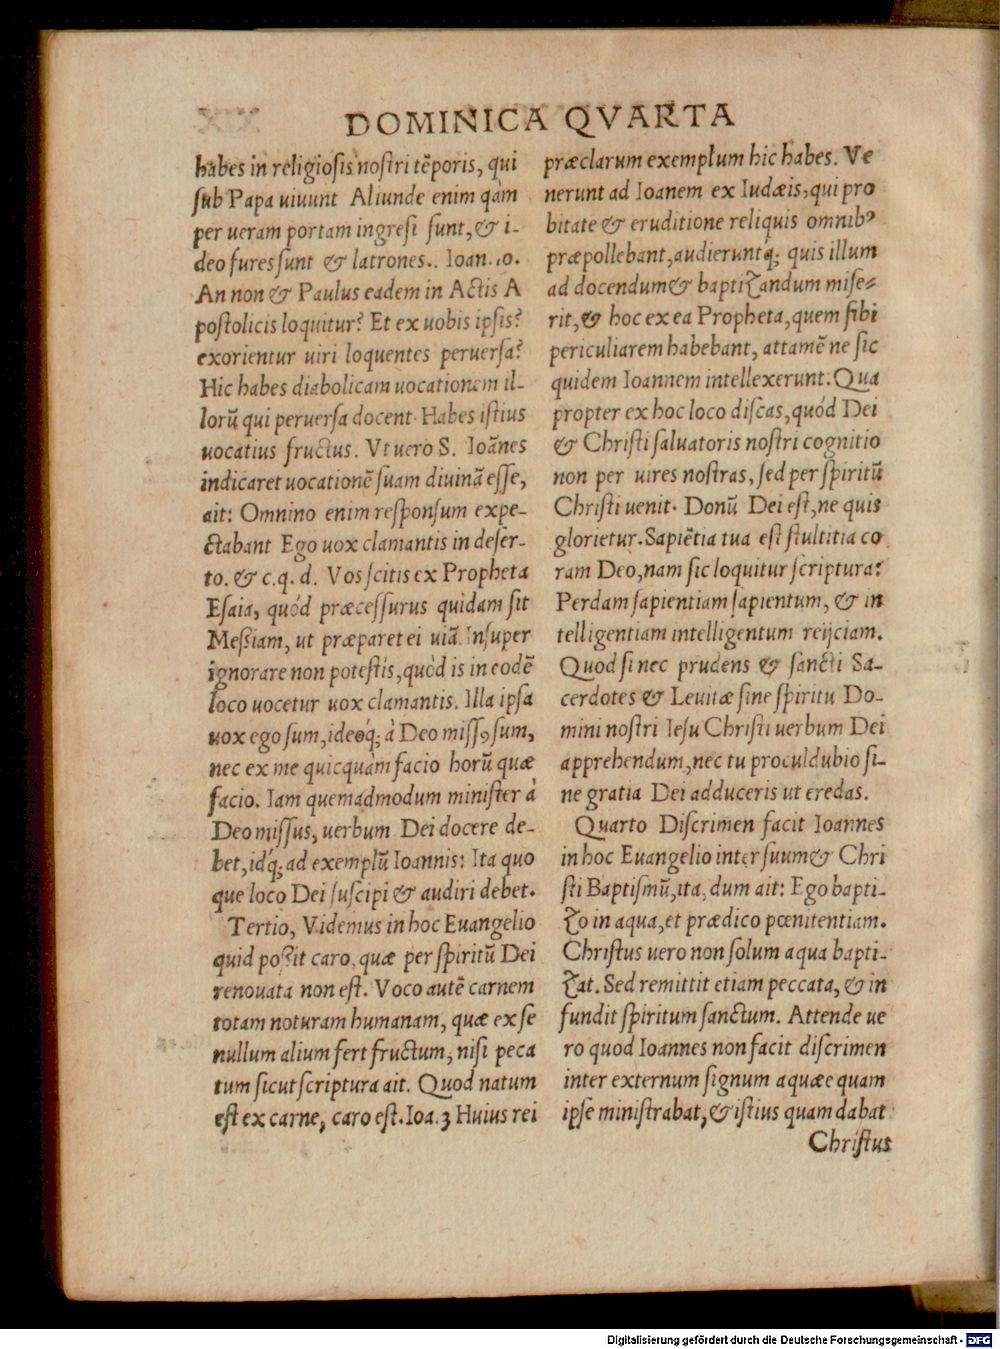 DOMINICA QVARTA
habes in religiosis nostri tẽporis, qui
sub Papa uiuunt Aliunde enim q̃àm
per ueram portam ingresi sunt, & i-
deo fures sunt & latrones.. Ioan.10.
An non & Paulus eadem in Actis A
postolicis loquitur? Et ex uobis ipsis?
exorientur uiri loquentes peruersa?
Hic habes diabolicam uocationem il-
lorũ qui peruersa docent. Habes istius
uocatius fructus. Vt uero S. Ioãnes
indicaret uocationẽ suam diuinã esse,
ait: Omnino enim responsum expe-
ctabant Ego uox clamantis in deser-
to. & c.q. d. Vos scitis ex Propheta
Esaia, quòd præcessurus quidam sit
Mesiam, ut præparet ei uiã. Insuper
ignorare non potestis, quòd is in eodẽ
loco uocetur uox clamantis. Illa ipsa
uox ego sum, ideoq́; à Deo missꝰ sum,
nec ex me quicquàm facio horũ quæ
facio. Iam quemadmodum minister à
Deo missus, uerbum Dei docere de-
bet, idq́; ad exemplũ Ioannis: Ita quo
que loco Dei suscipi & audiri debet.
Tertio, Videmus in hoc Euangelio
quid posit caro, quæ per spiritũ Dei
renouata non est. Voco autẽ carnem
totam noturam humanam, quæ ex se
nullum alium fert fructum, nisi peca
tum sicut scriptura ait. Quod natum
est ex carne, caro est. Ioa.3 Huius rei
præclarum exemplum hic habes. Ve
nerunt ad Ioanem ex Iudæis, qui pro
bitate & eruditione reliquis omnibꝰ
præpollebant, audieruntq́; quis illum
ad docendum & baptizandum mise-
rit, & hoc ex ea Propheta, quem sibi
periculiarem habebant, attamẽ ne sic
quidem Ioannem intellexerunt. Qua
propter ex hoc loco discas, quód Dei
& Christi saluatoris nostri cognitio
non per uires nostras, sed per spiritũ
Christi uenit. Donũ Dei est, ne quis
glorietur. Sapiẽtia tua est stultitia co
ram Deo, nam sic loquitur scriptura:
Perdam sapientiam sapientum, & in
telligentiam intelligentum reijciam.
Quod si nec prudens & sancti Sa-
cerdotes & Leuitæ sine spiritu Do-
mini nostri Iesu Christi uerbum Dei
apprehendum, nec tu proculdubio si-
ne gratia Dei adduceris ut credas.
Quarto Discrimen facit Ioannes
in hoc Euangelio inter suum & Chri
sti Baptismũ, ita, dum ait: Ego bapti-
zo in aqua, et prædico pœnitentiam.
Christus uero non solum aqua bapti-
zat. Sed remittit etiam peccata, & in
fundit spiritum sanctum. Attende ue
ro quod Ioannes non facit discrimen
inter externum signum aquæ quam
ipse ministrabat, & istius quam dabat
Christus
Digitalisierung gefördert durch die Deutsche Forschungsgemeinschaft - DFG